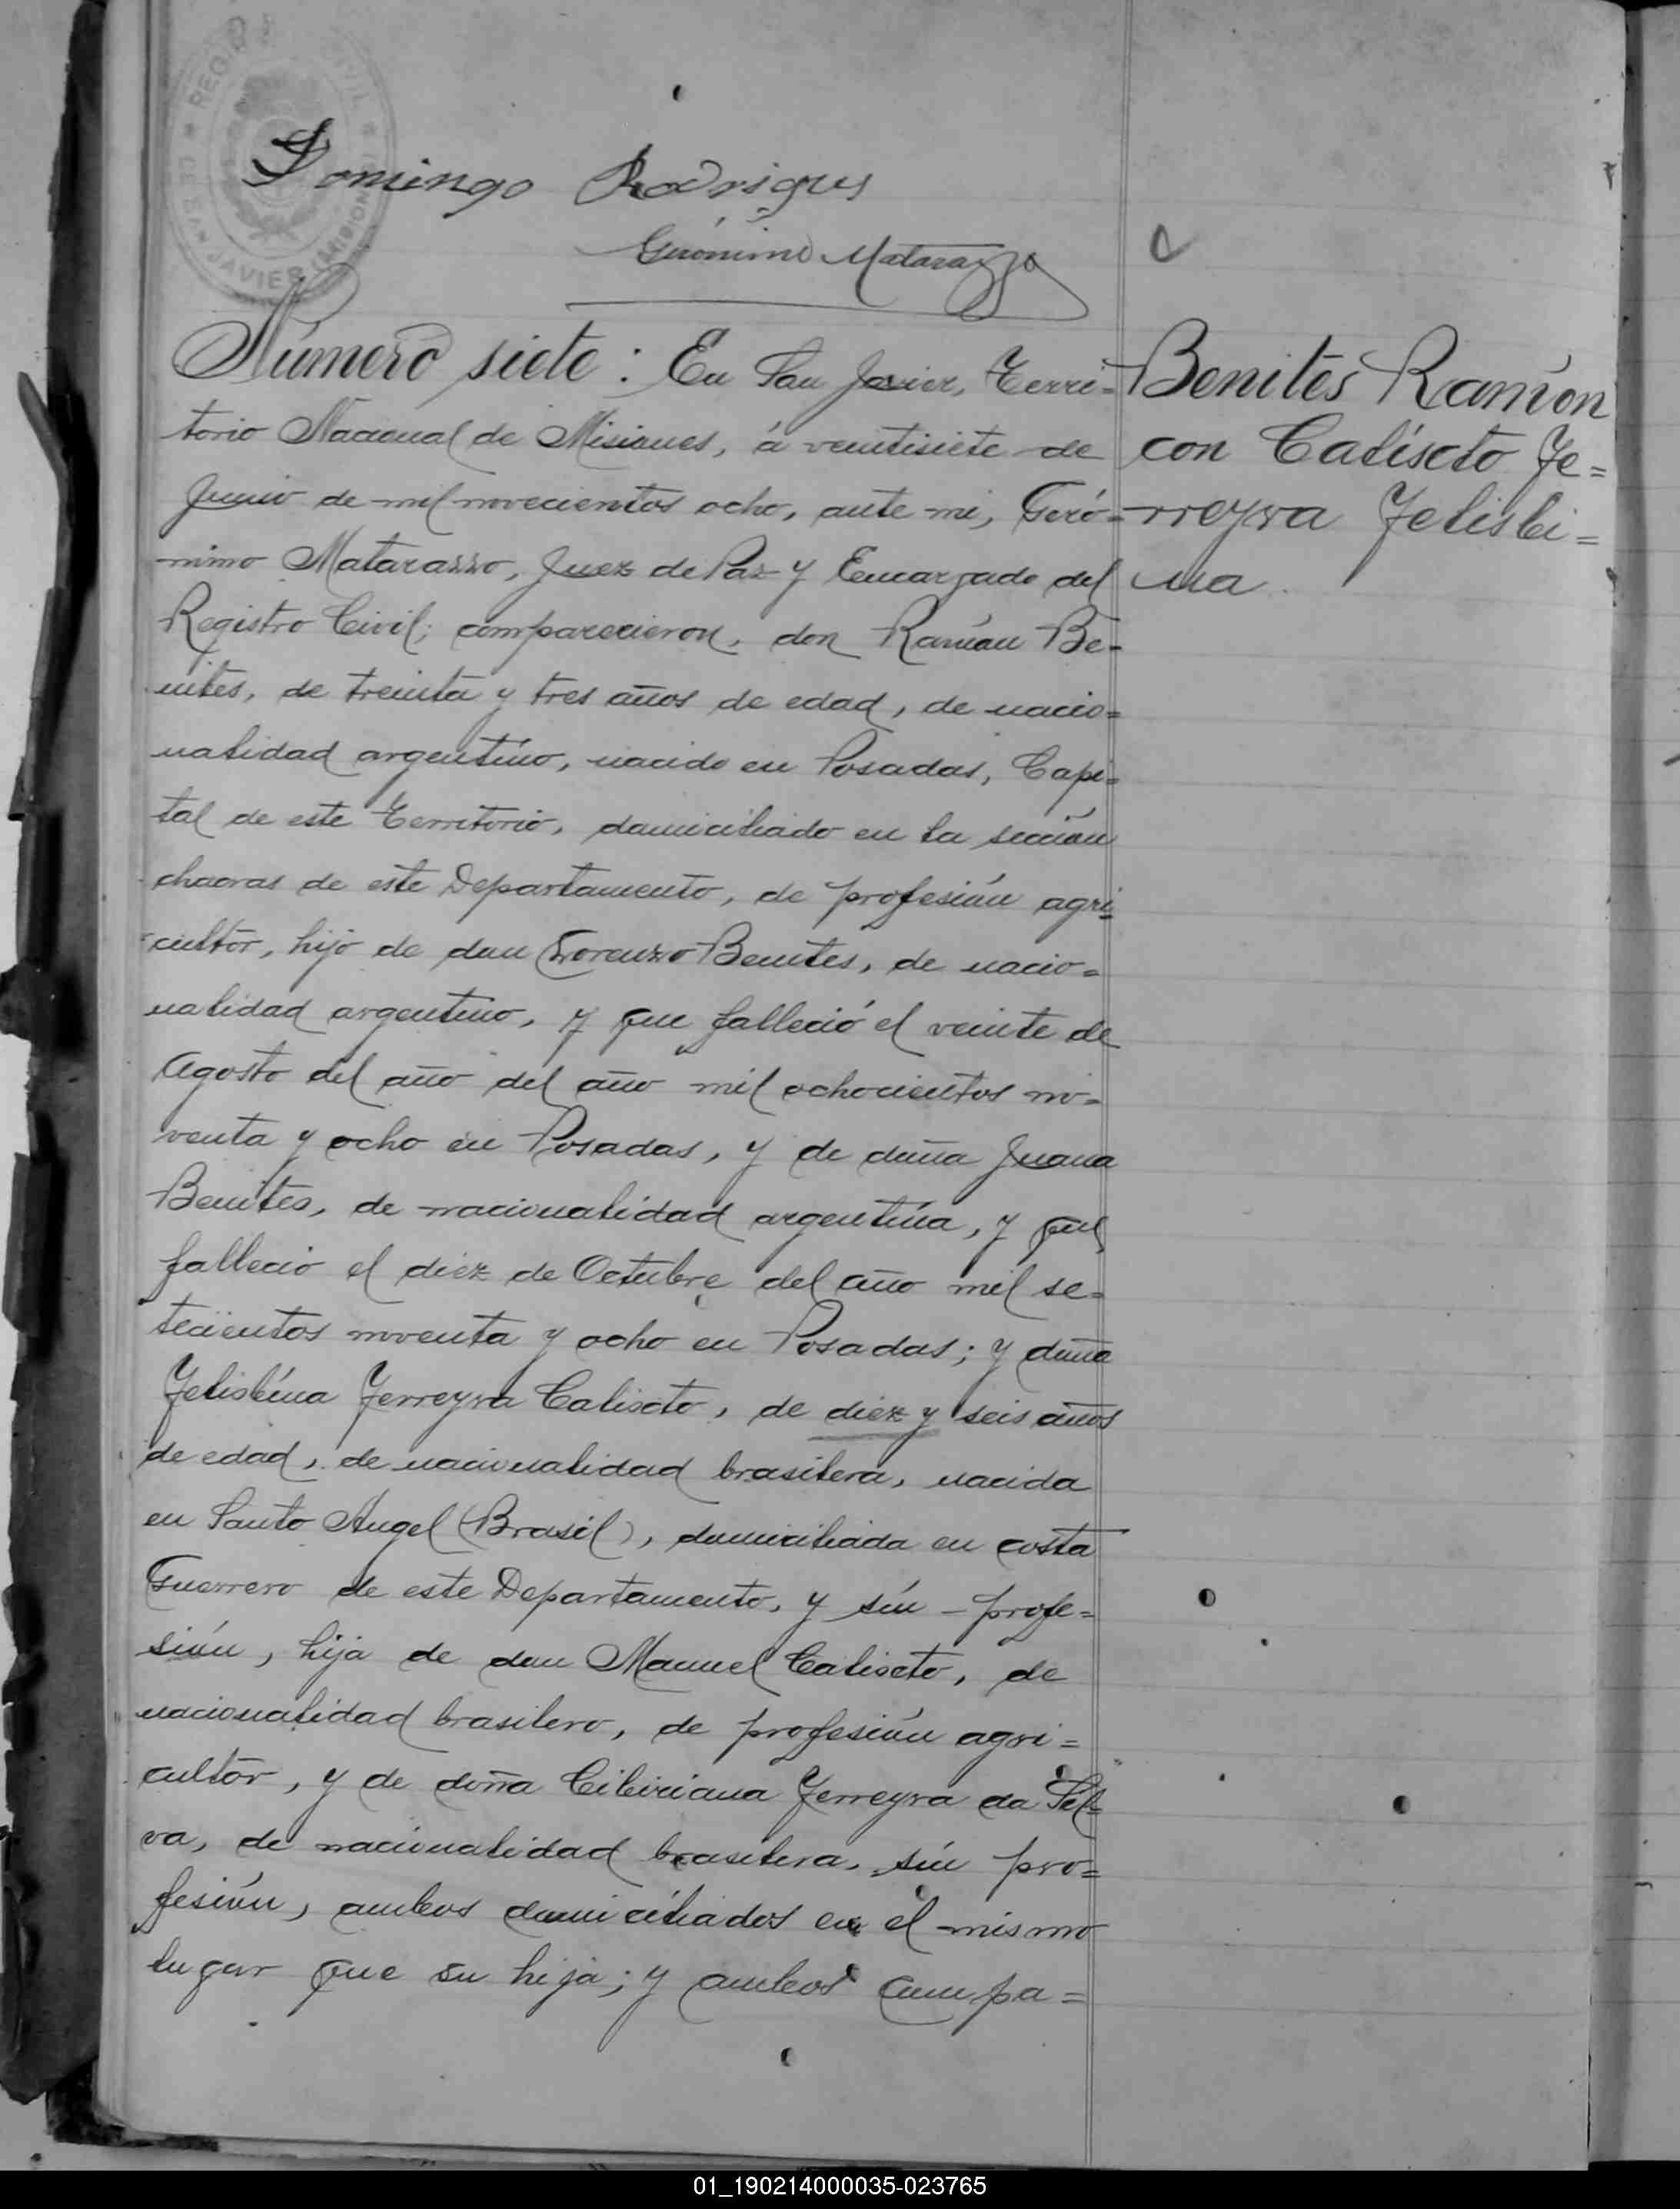 REGISTRO CIVIL
DE SAN JAVIER (MISIONES)
Domingo Rodrigues
Gerónimo Matarazzo
Número siete: En San Javier, Terri=
torio Nacional de Misiones, á veintisiete de
Junio de mil novecientos ocho, ante mi, Geró=
nimo Matarazzo, Juez de Paz y Encargado del
Registro Civil; comparecieron, don Ramón Be=
nites, de treinta y tres años de edad, de nacio=
nalidad argentino, nacido en Posadas, Capi=
tal de este Territorio, domiciliado en la sección
chacras de este Departamento, de profesión agri
cultor, hijo de don Lorenzo Benites, de nacio=
nalidad argentino, y que falleció el veinte de
Agosto del año del año mil ochocientos no=
venta y ocho en Posadas, y de doña Juana
Benites, de nacionalidad argentina, y que
falleció el diez de Octubre del año mil se=
tecientos noventa y ocho en Posadas; y doña
Felisbina Ferreyra Caliscto, de diez y seis años
de edad, de nacionalidad brasilera, nacida
en Santo Angel (Brasil), domiciliada en costa
Guerrero de este Departamento, y sin profe=
sión, hija de don Manuel Caliscto, de
nacionalidad brasilero, de profesión agri=
cultor, y de doña Cibiriana Ferreyra da Sil=
va, de nacionalidad brasilera, sin pro=
fesión, ambos domiciliados en el mismo
lugar que su hija; y ambos compa=
Benites Ramón
con Caliscto Fe=
rreyra Felisbi=
na
01_190214000035-023765